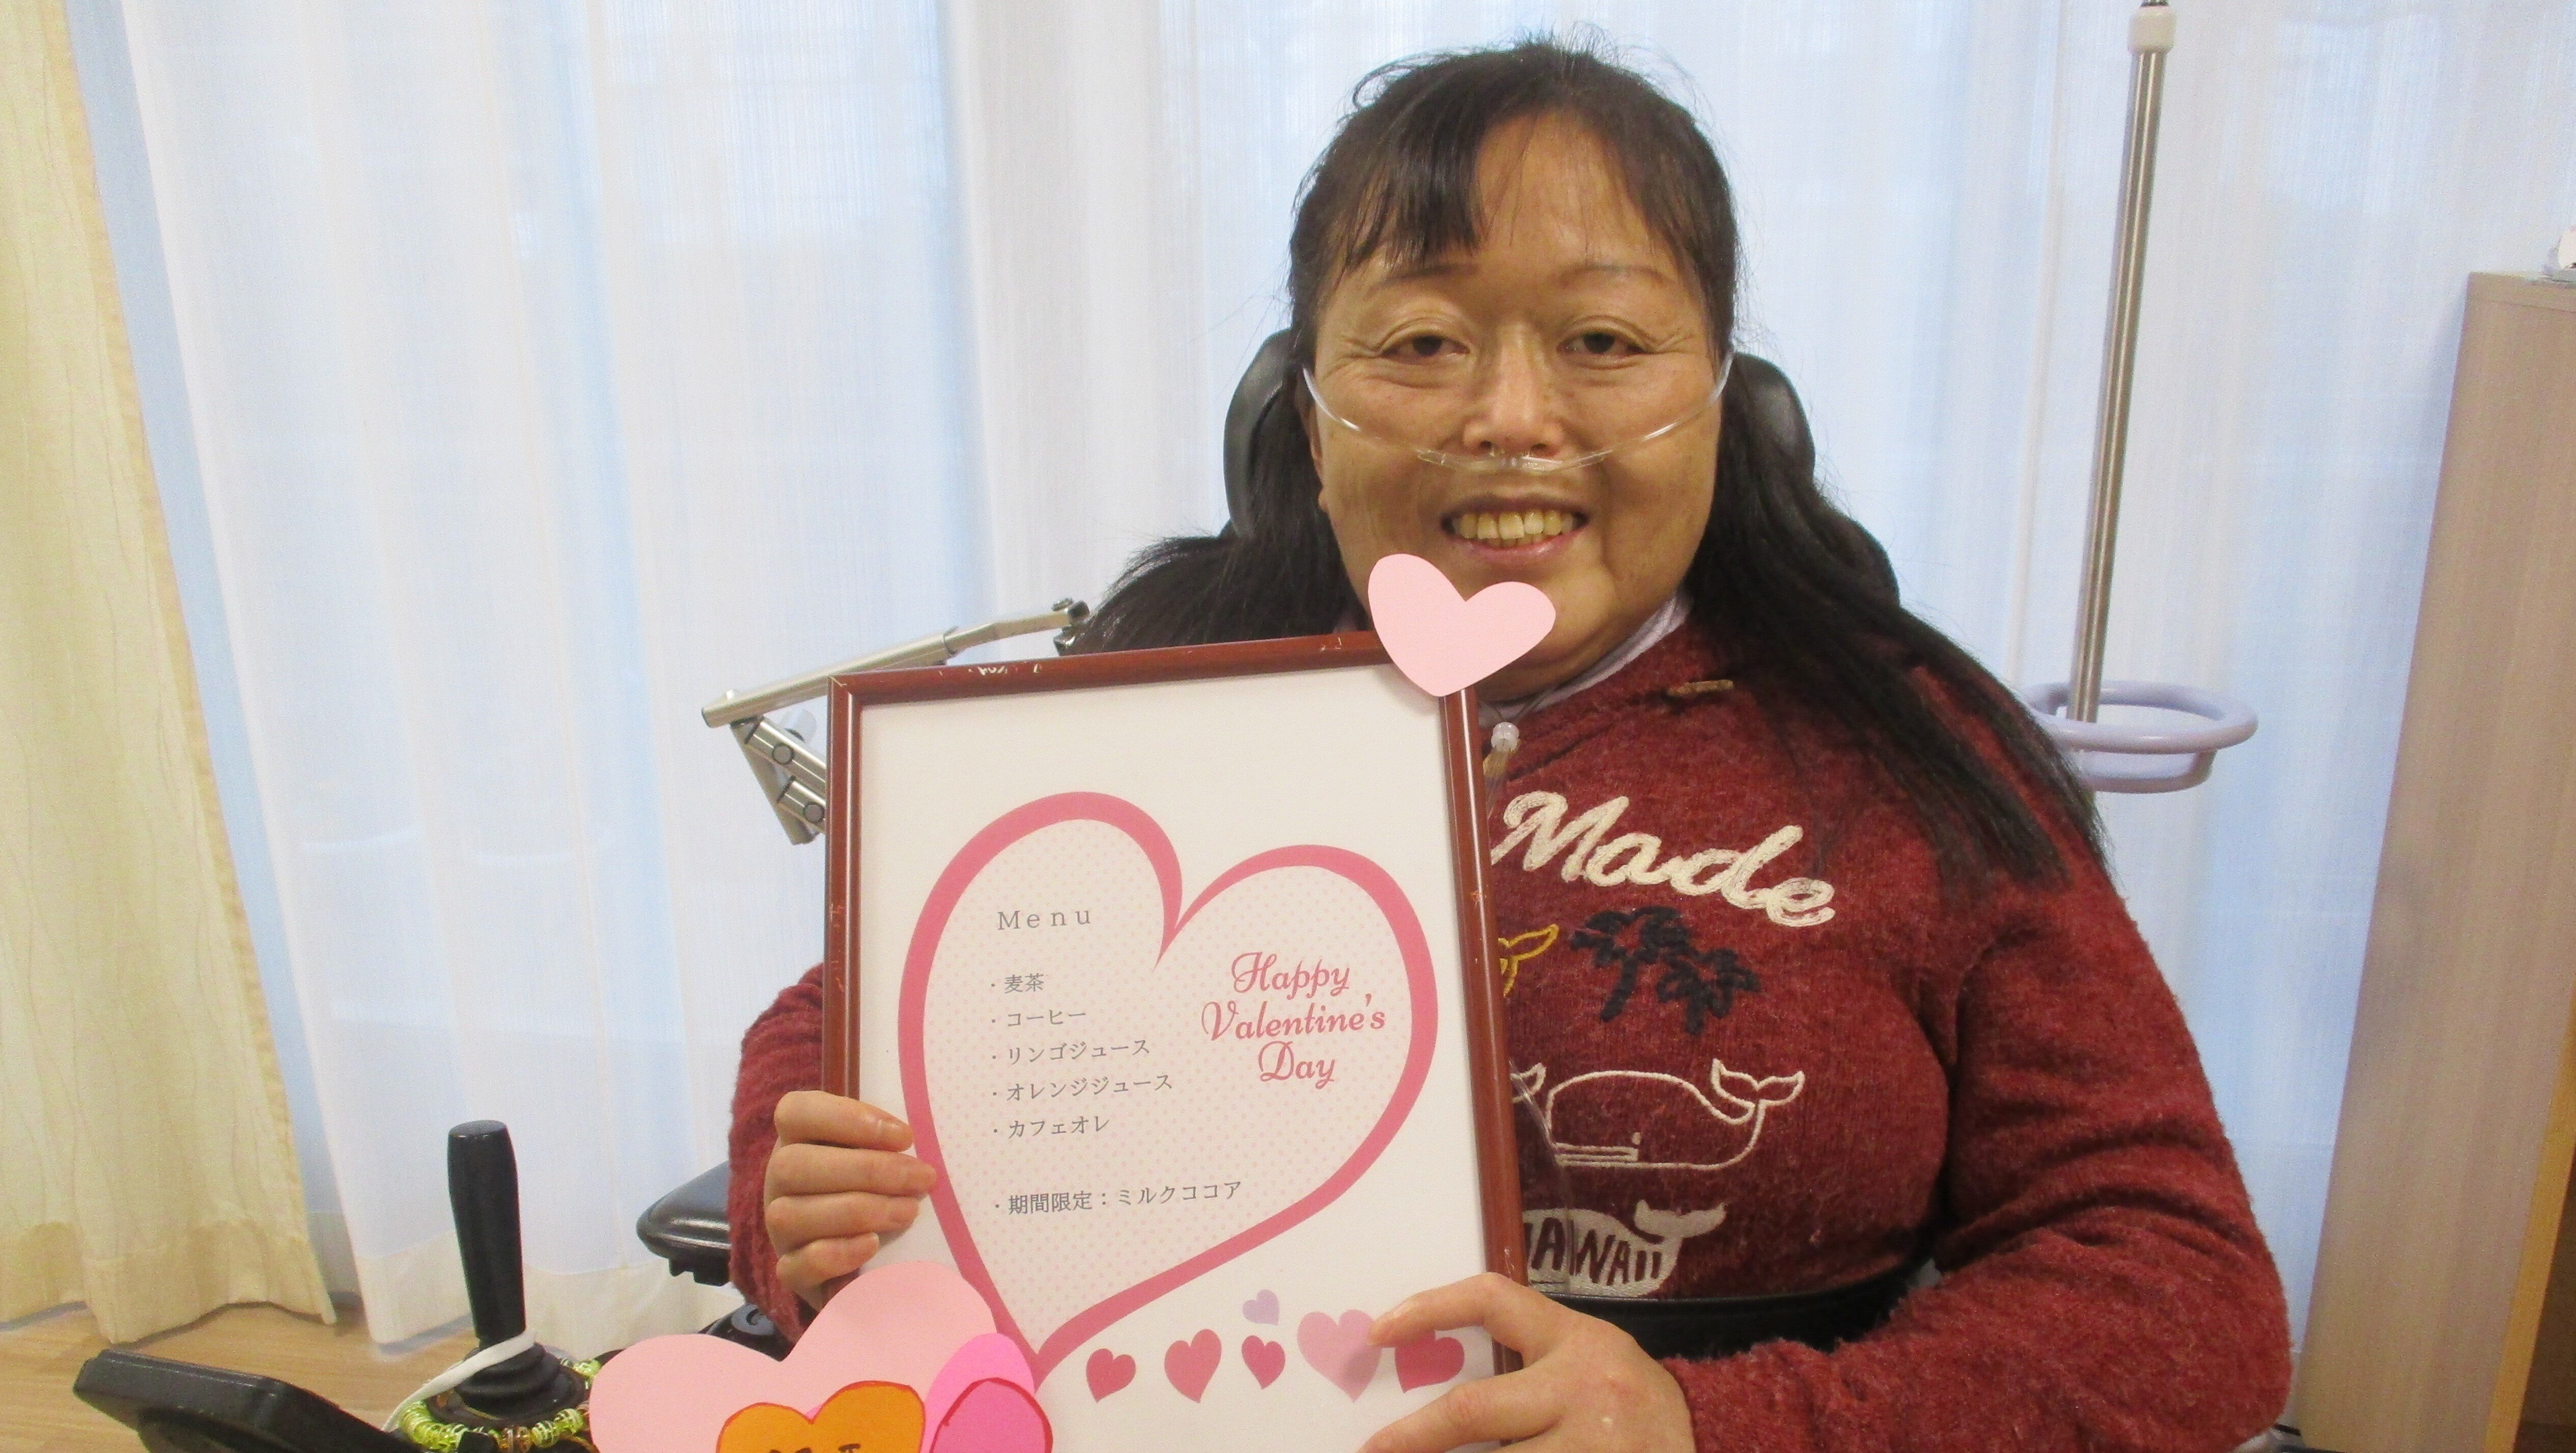 Menu
・麦茶
・コーヒー
・リンゴジュース
・オレンジジュース
・カフェオレ
・期間限定：ミルクココア
Happy
Valentine's
Day
Made